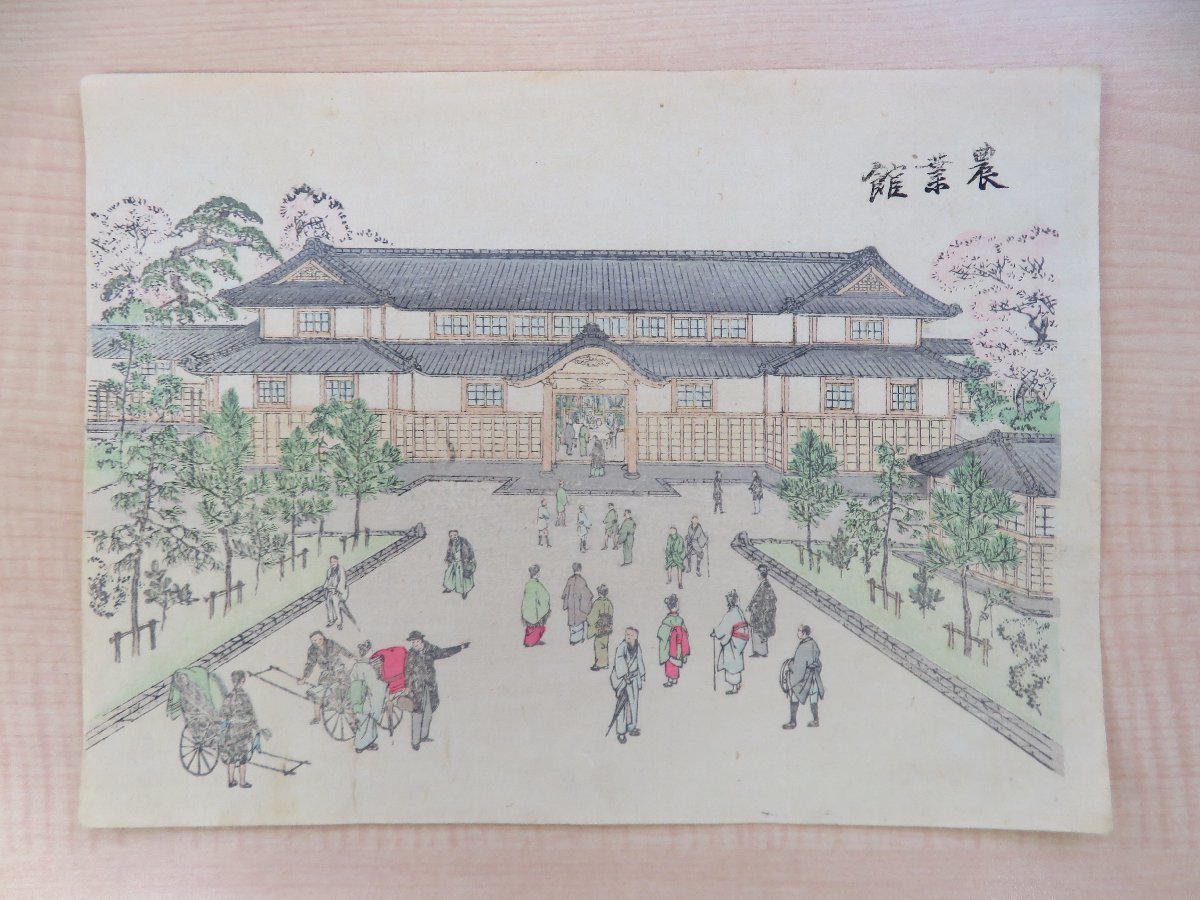 農業館